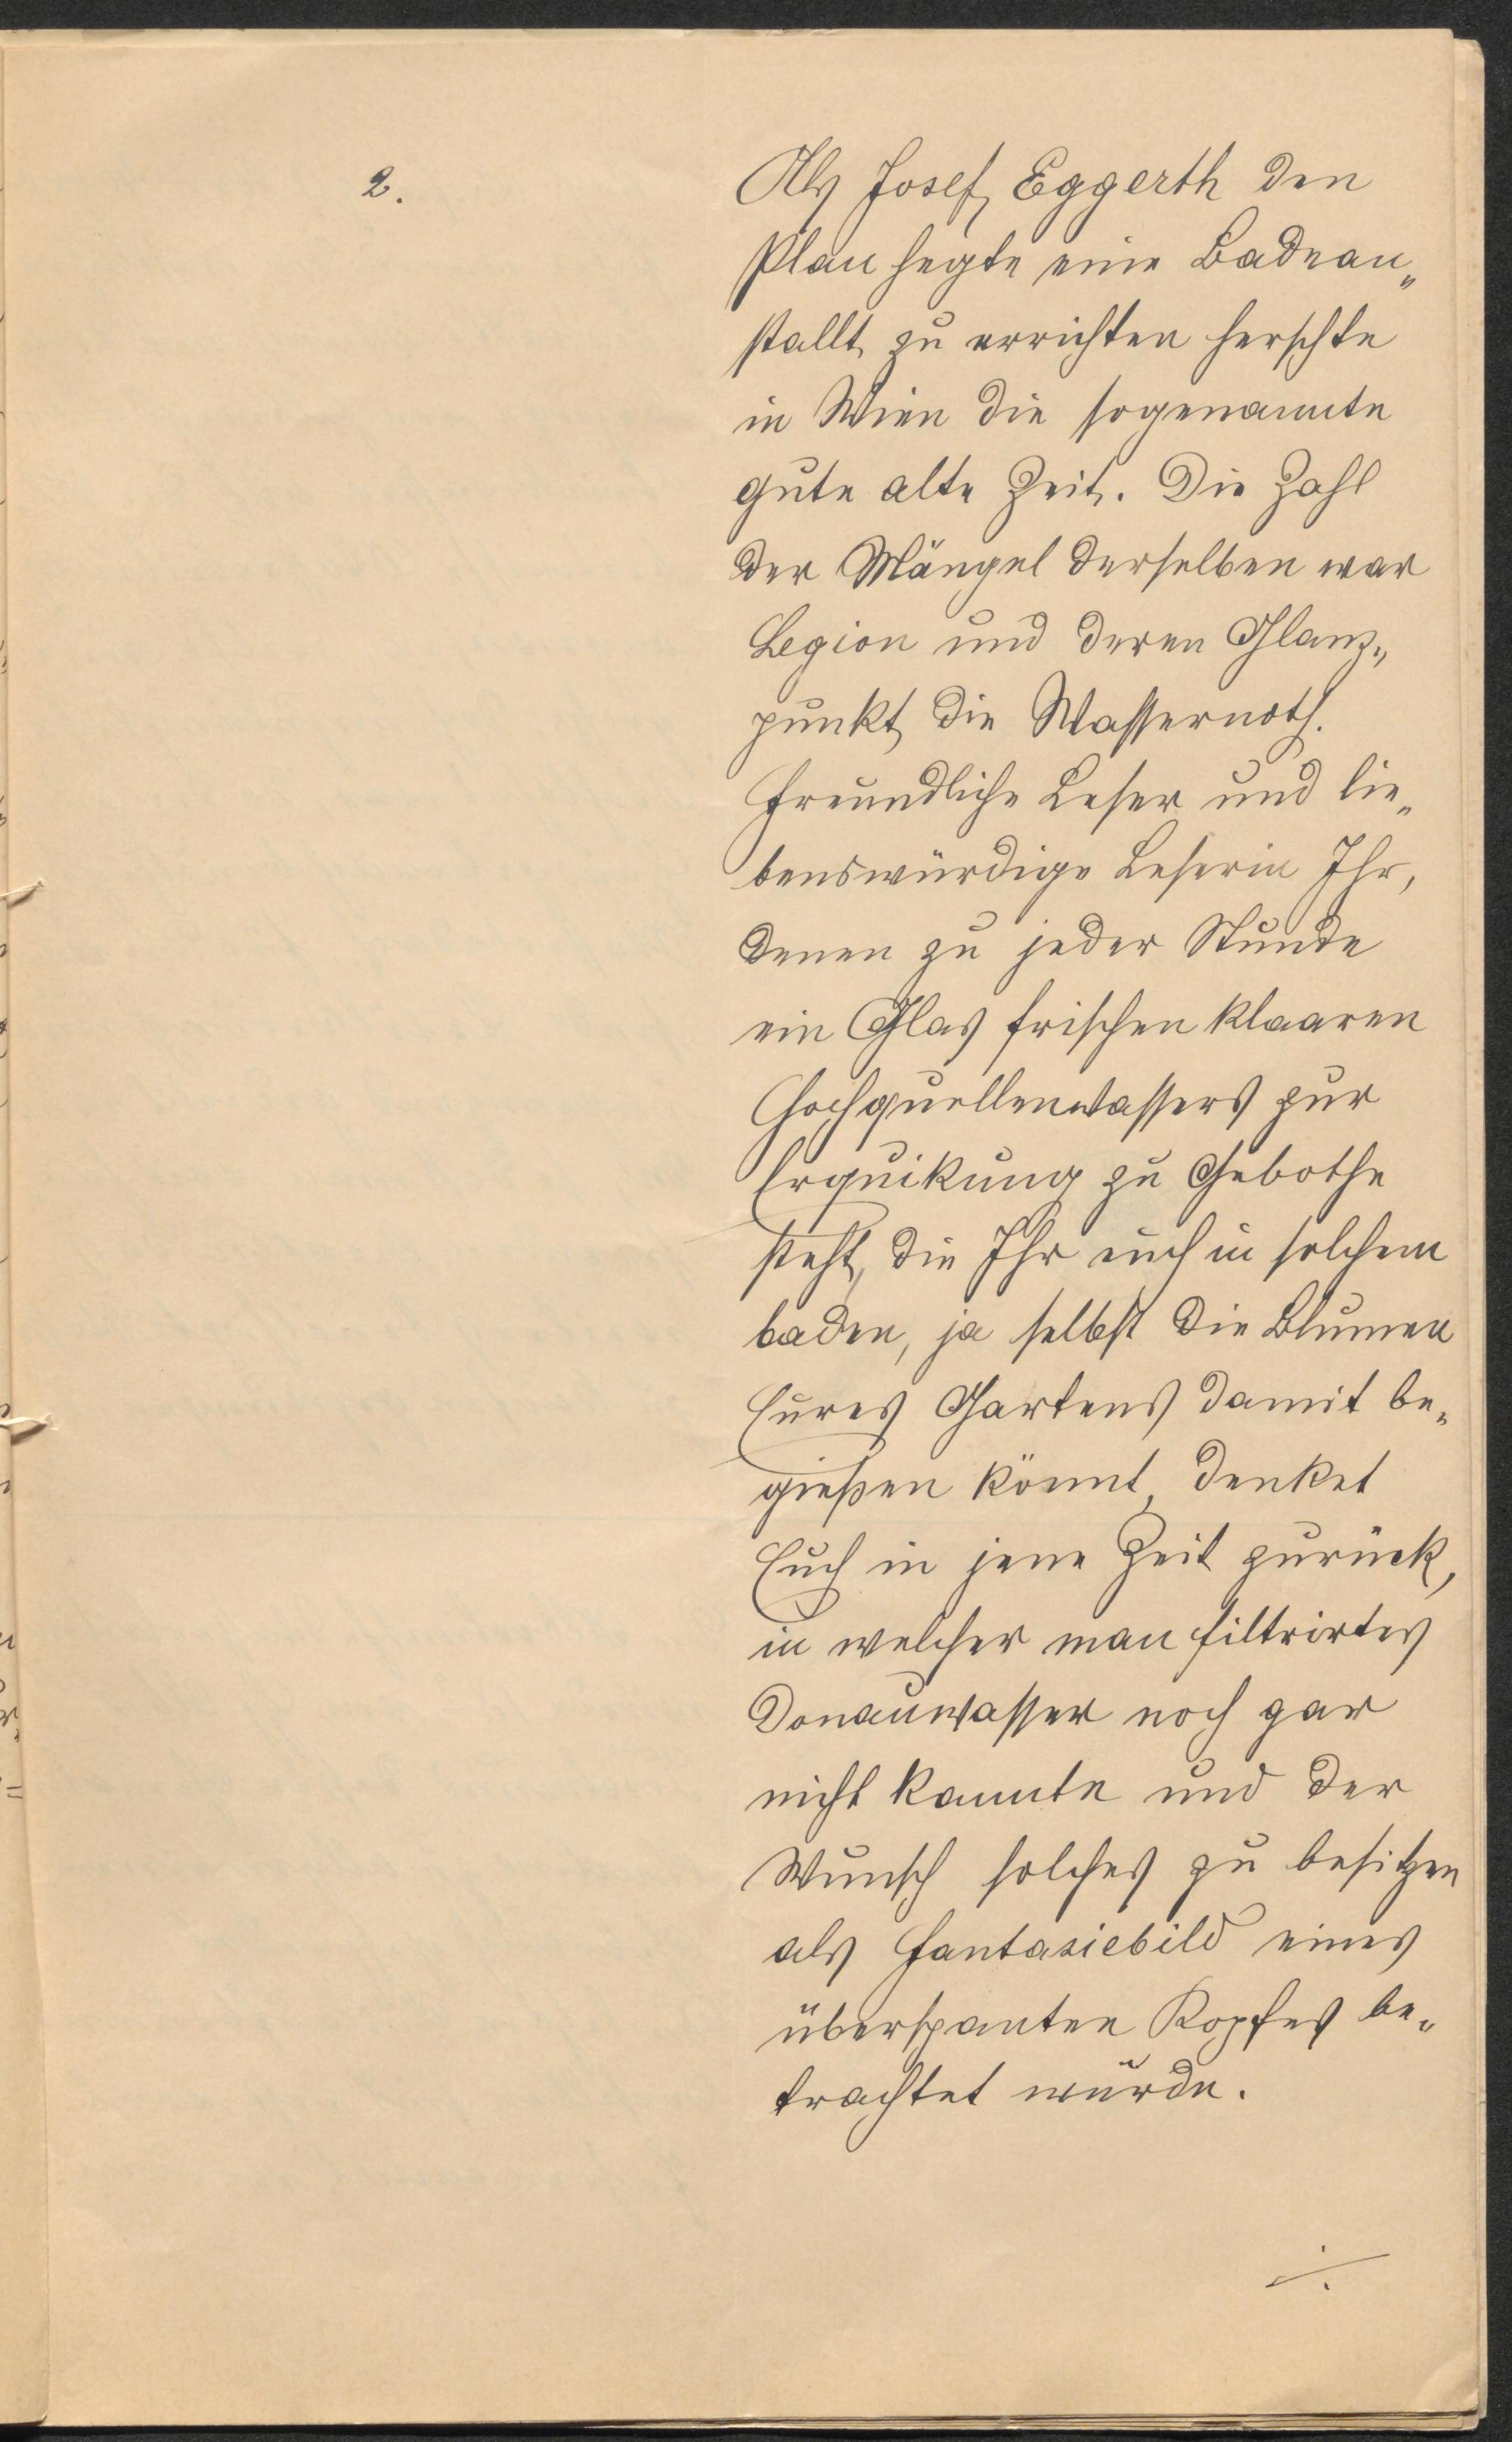 2.
Als Josef Eggerth den
Plan hegte eine Badean„
stallt zu errichten herschte
in Wien die sogenannte
gute alte Zeit. Die Zahl
der Mängel derselben war
Legion und deren Glanz„
punkt die Wassernoth.
Freundliche Leser und lie„
benswürdige Leserin Ihr,
denen zu jeder Stunde
ein Glas frischen klaaren
Hochquellenwassers zur
Erquikung zu Gebothe
steht, die Ihr euch in solchem
baden, ja selbst die Blumen
Eures Gartens damit be„
gießen könnt, denket
Euch in jene Zeit zurück,
in welcher man filtrirtes
Donauwasser noch gar
nicht kannte und der
Wunsch solches zu besitzen
als Fantasiebild eines
überspanten Kopfes be„
trachtet würde.
./.